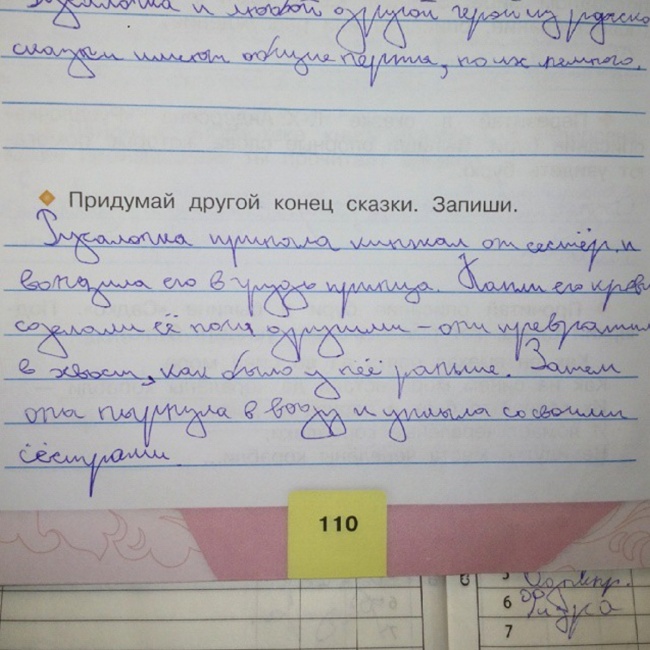 Русалочка и любой другой герой из русской
сказки имеют общие черты, но их немного.
Придумай другой конец сказки. Запиши.
Русалочка приняла кинжал от сестёр и
вонзила его в грудь принца. Капли его крови
сделали её ноги другими – они превратились
в хвост, как было у неё раньше. Затем
она нырнула в воду и уплыла со своими
сёстрами.
110
5
6 Физ-ра
7